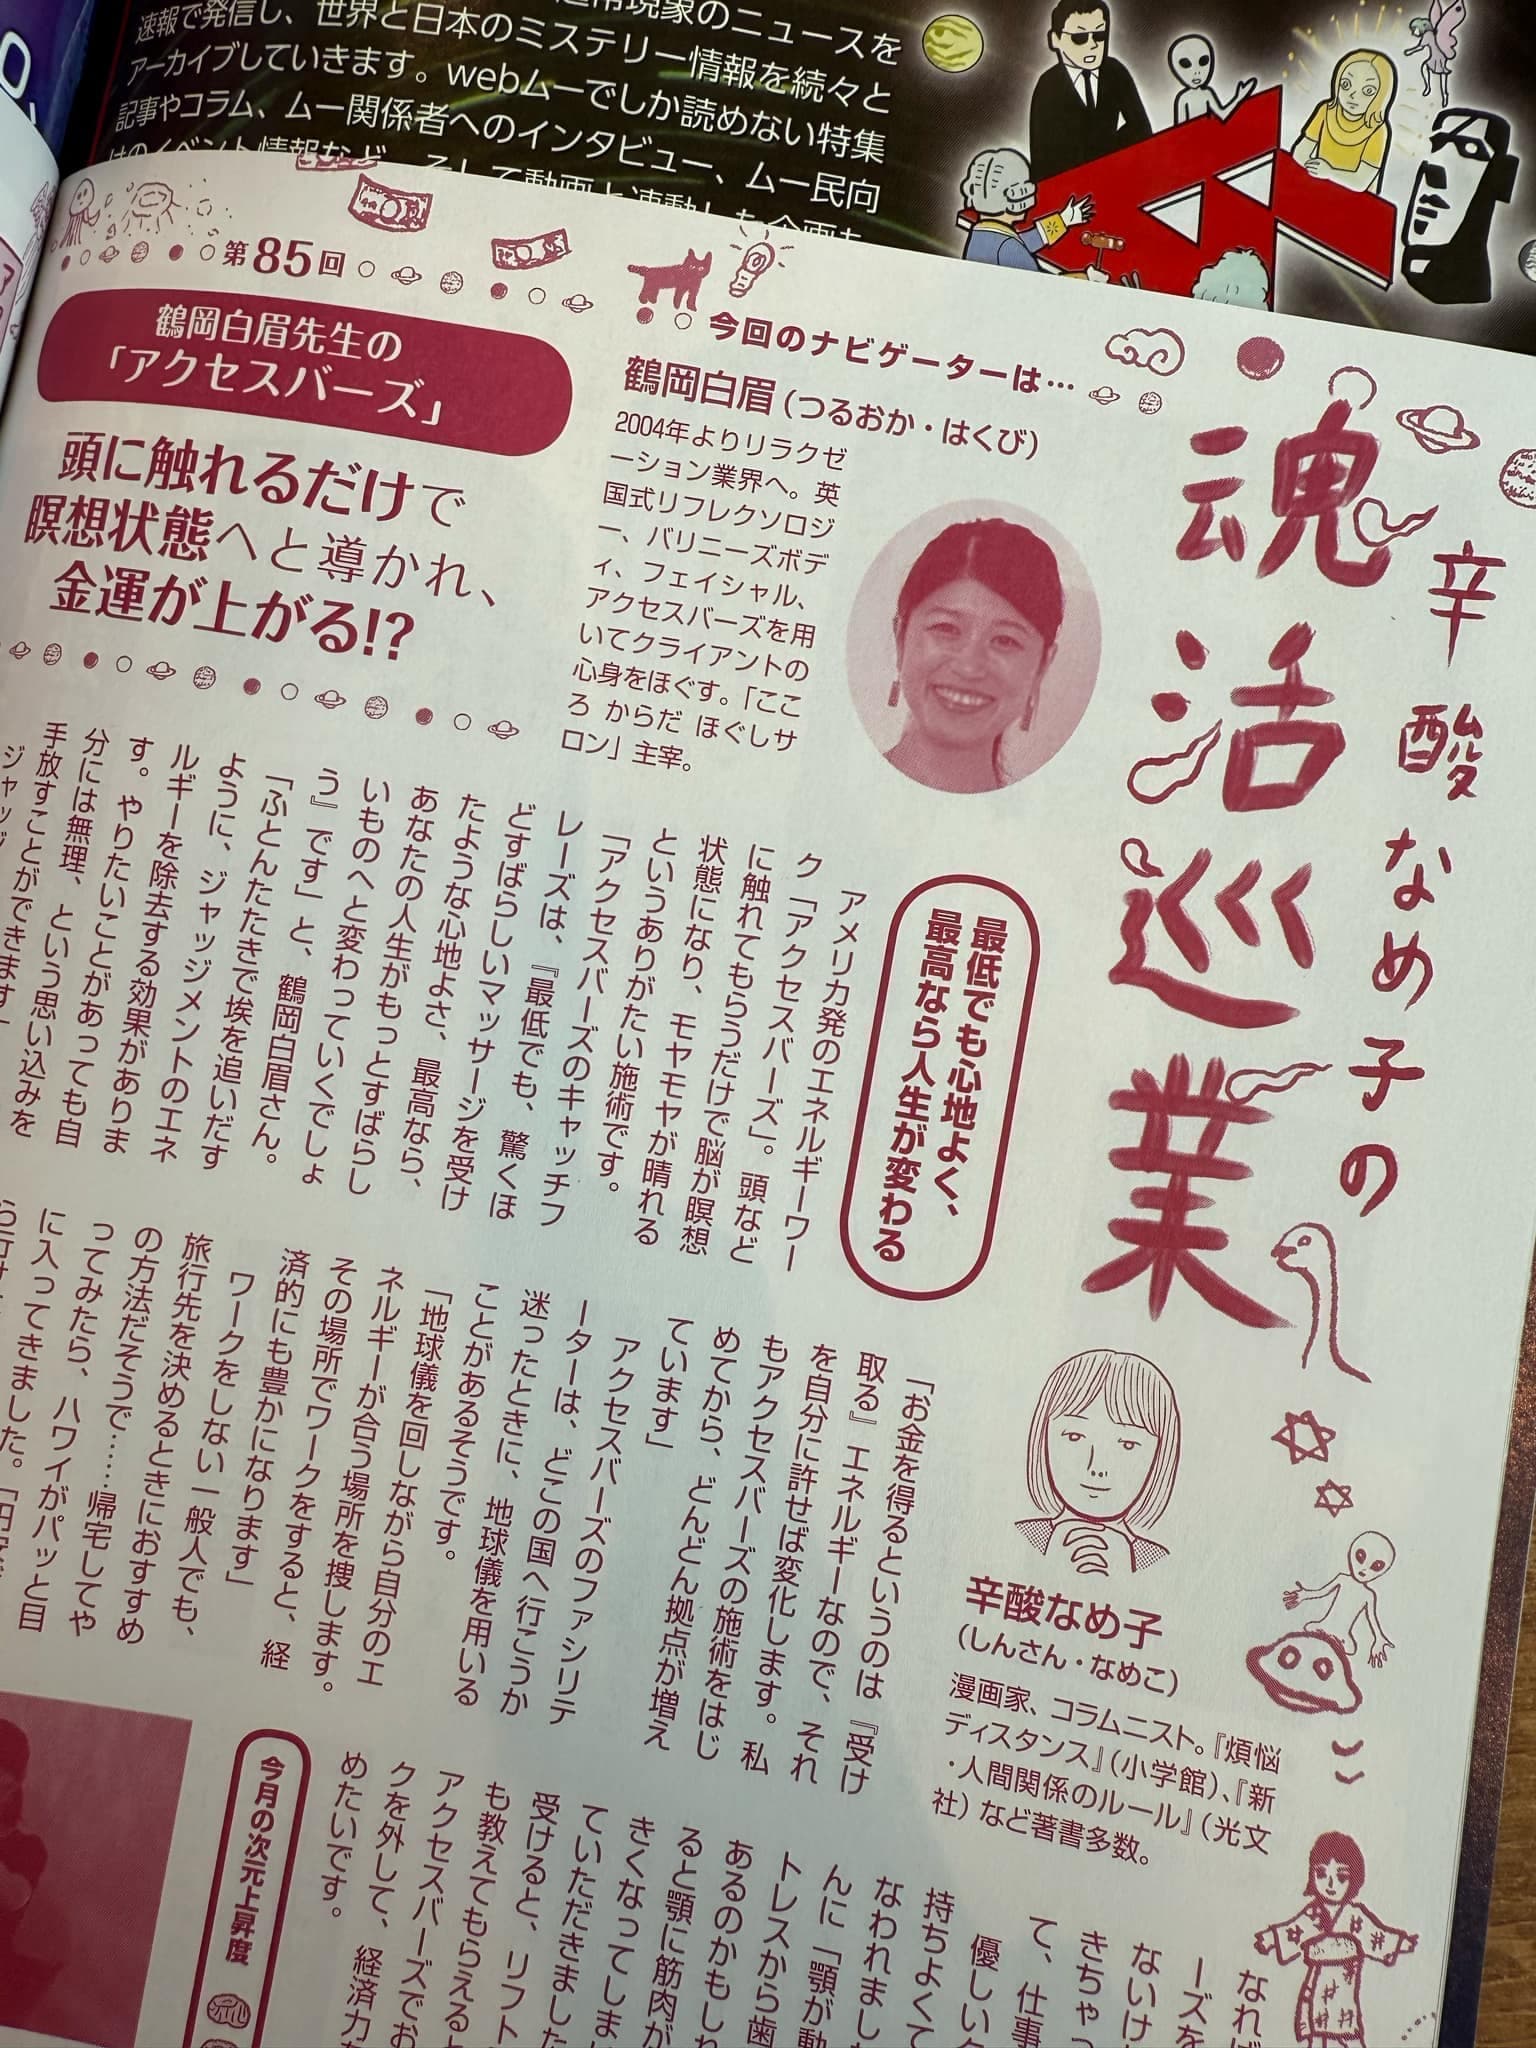 速報で発信し、世界と日本のミステリー情報を続々と
アーカイブしていきます。webムーでしか読めない特集
記事やコラム、ムー関係者へのインタビュー、ムー民向
辛酸なめ子の
魂活巡業
第85回
今回のナビゲーターは…
鶴岡白眉先生の
「アクセスバーズ」
頭に触れるだけで
瞑想状態へと導かれ、
金運が上がる!?
鶴岡白眉(つるおか・はくび)
2004年よりリラクゼ
ーション業界へ。英
国式リフレクソロジ
ー、バリニーズボデ
ィ、フェイシャル、
アクセスバーズを用
いてクライアントの
心身をほぐす。「ここ
ろ からだ ほぐしサ
ロン」主宰。
最低でも心地よく、
最高なら人生が変わる
アメリカ発のエネルギーワー
ク「アクセスバーズ」。頭など
に触れてもらうだけで脳が瞑想
状態になり、モヤモヤが晴れる
というありがたい施術です。
「アクセスバーズのキャッチフ
レーズは、『最低でも、驚くほ
どすばらしいマッサージを受け
たような心地よさ、最高なら、
あなたの人生がもっとすばらし
いものへと変わっていくでしょ
う』です」と、鶴岡白眉さん。
「ふとんたたきで埃を追いだす
ように、ジャッジメントのエネ
ルギーを除去する効果がありま
す。やりたいことがあっても自
分には無理、という思い込みを
手放すことができます」
「お金を得るというのは『受け
取る』エネルギーなので、それ
を自分に許せば変化します。私
もアクセスバーズの施術をはじ
めてから、どんどん拠点が増え
ています」
アクセスバーズのファシリテ
ーターは、どこの国へ行こうか
迷ったときに、地球儀を用いる
ことがあるそうです。
「地球儀を回しながら自分のエ
ネルギーが合う場所を捜します。
その場所でワークをすると、経
済的にも豊かになります」
ワークをしない一般人でも、
旅行先を決めるときにおすすめ
の方法だそうで……帰宅してや
ってみたら、ハワイがパッと目
に入ってきました。「円安だ
辛酸なめ子
(しんさん・なめこ)
漫画家、コラムニスト。『煩悩
ディスタンス』(小学館)、『新
・人間関係のルール』(光文
社)など著書多数。
なれば
ーズを
ないけ
きちゃっ
て、仕事
優しいタ
持ちよくて
なわれまし
んに「顎が動
トレスから歯
あるのかもしれ
ると顎に筋肉が
きくなってしま
ていただきました
受けると、リフト
も教えてもらえると
アクセスバーズでお
クを外して、経済力
めたいです。
今月の次元上昇度